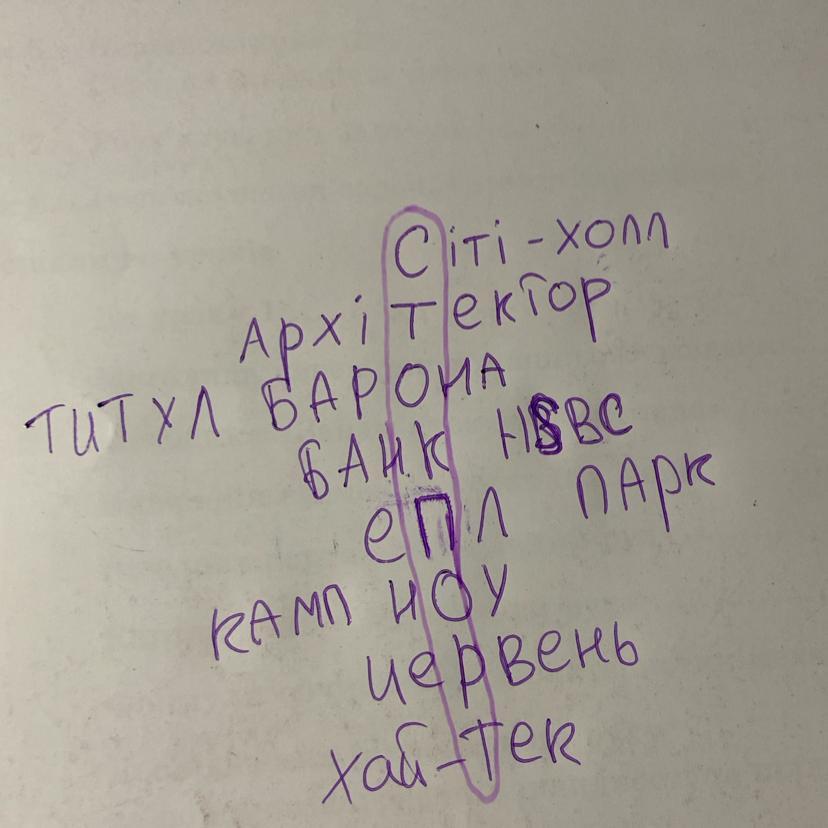 Сіті-холл
Архітектор
титул БАРОНА
БАНК HSBC
еПЛ ПАРК
КАМП НОУ
червень
хай-тек